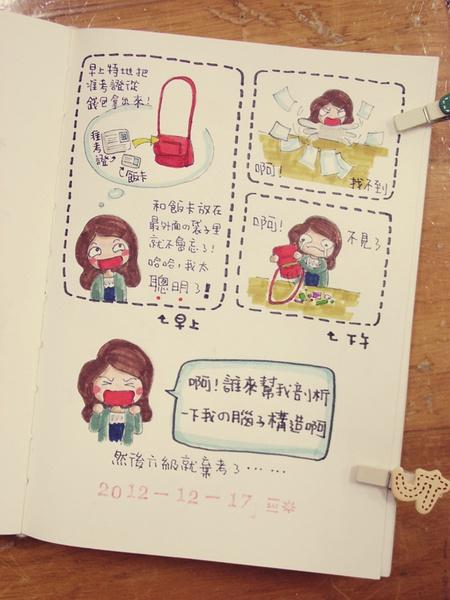 早上特地把
准考證從
錢包拿出來!
准考
證
飯卡
和飯卡放在
最外面の袋子里
就不會忘了!
哈哈,我太
聰明了!
早上
啊!
找不到
啊!
不見了
下午
啊!誰來幫我剖析
一下我の腦子構造啊
然後六級就棄考了……
2012-12-17